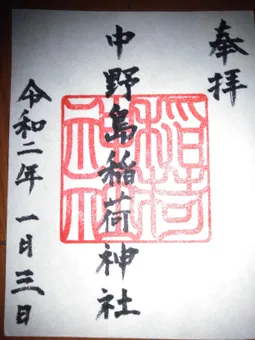 奉拝
中野島稲荷神社
令和二年一月三日
稲荷
神社